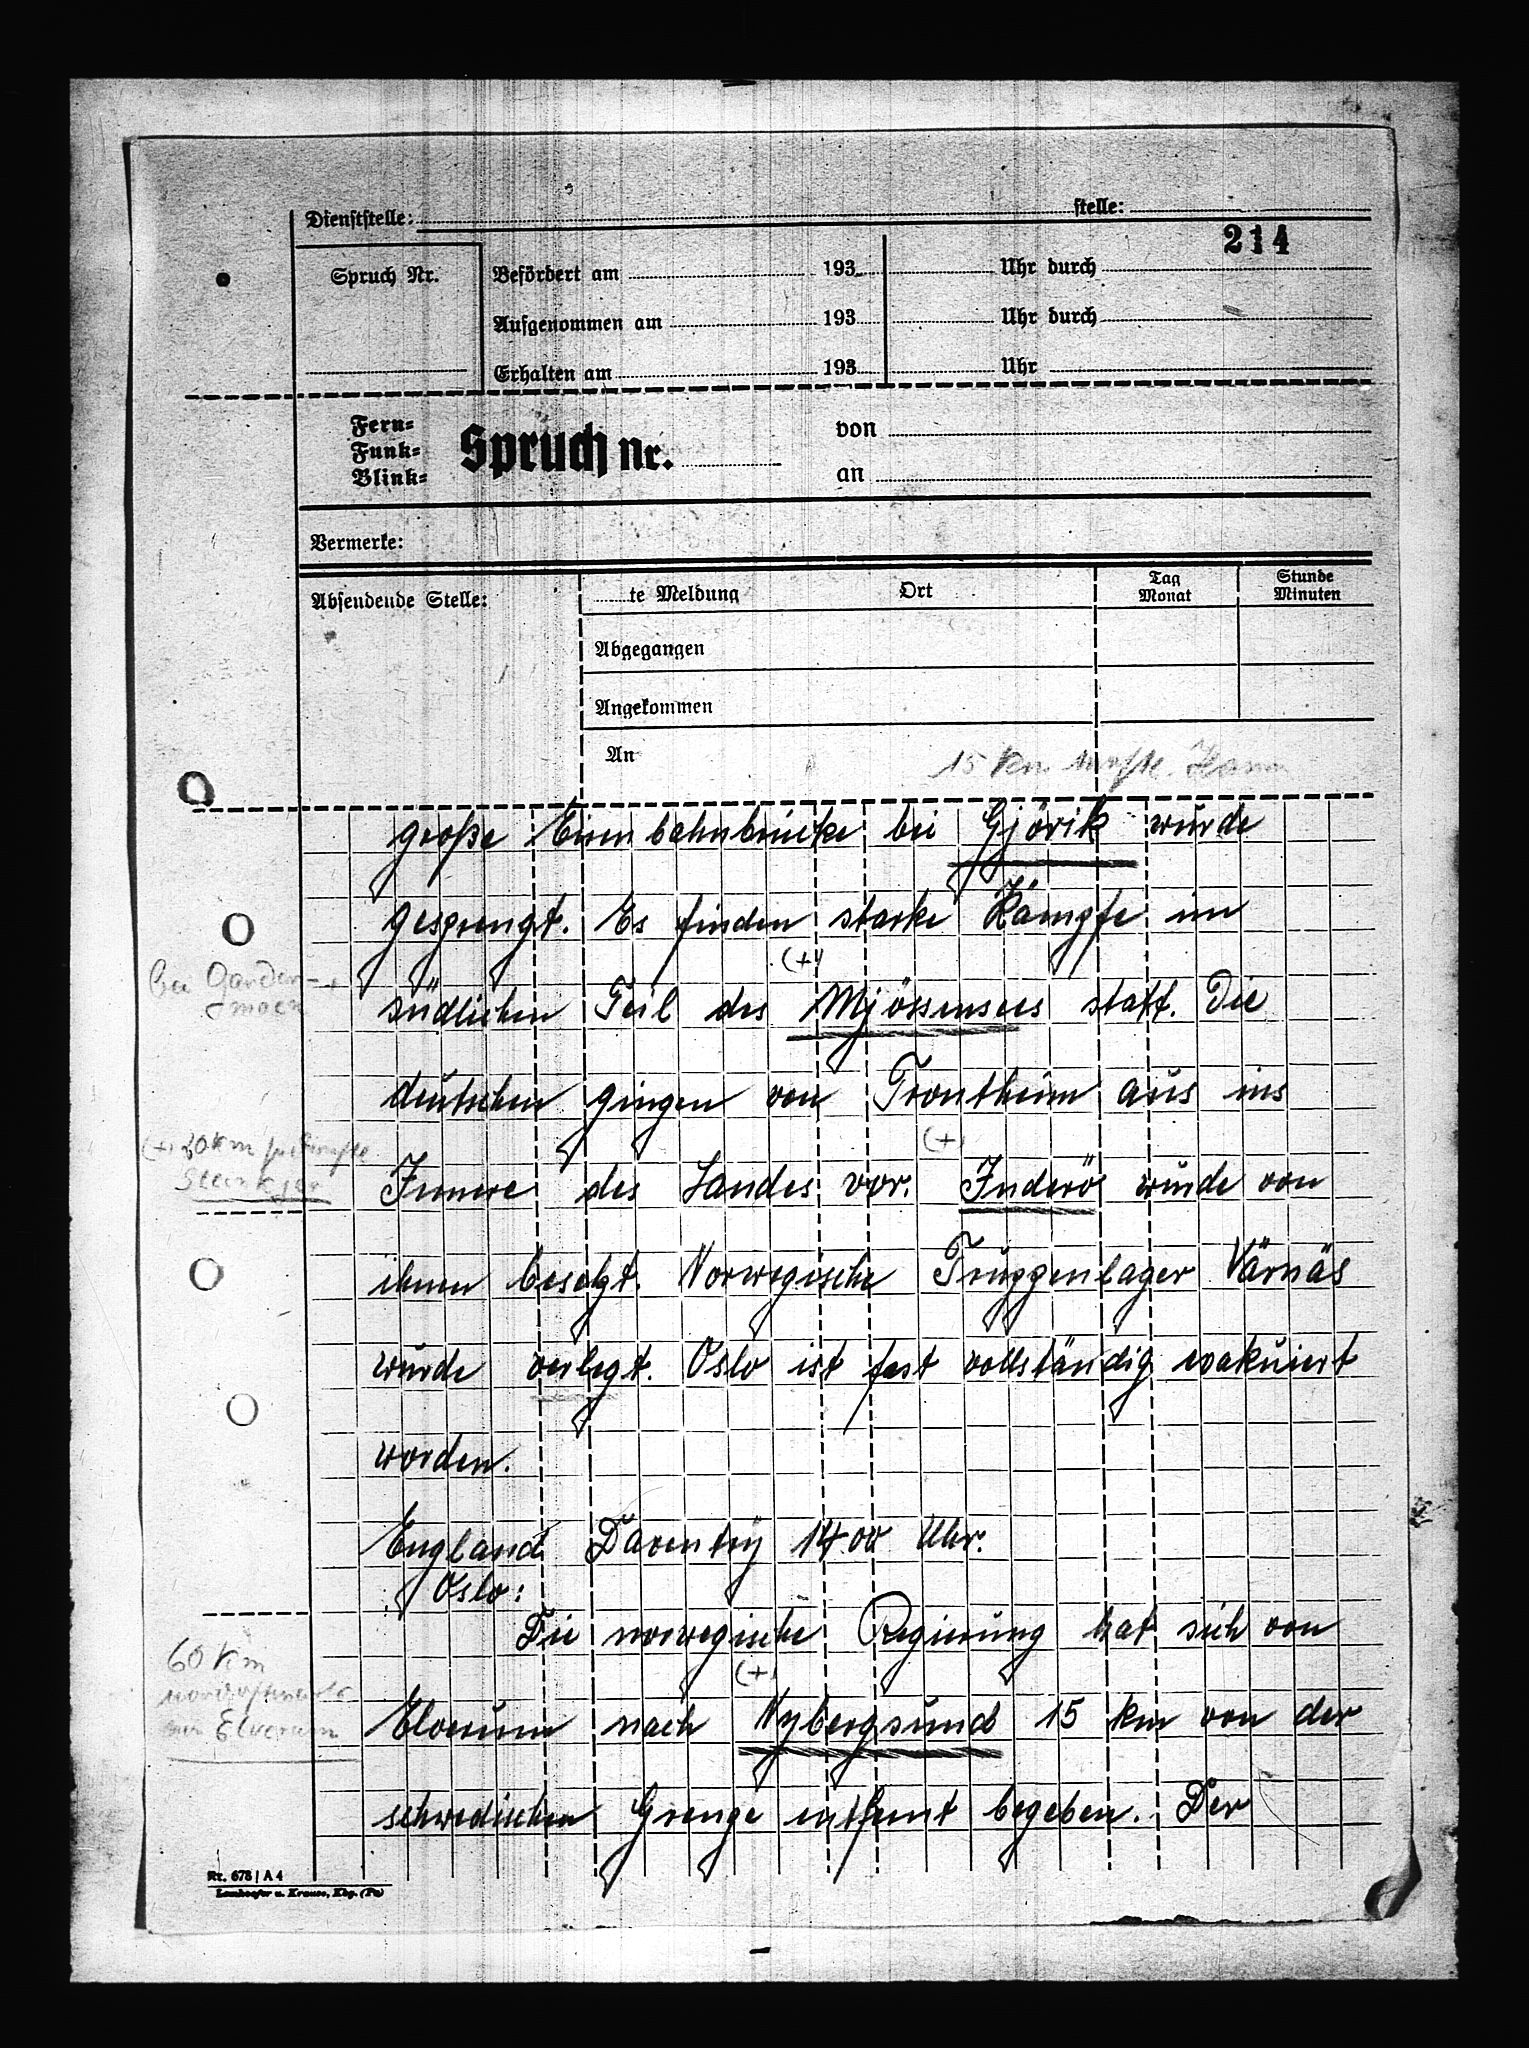 Dienststelle: stelle:
214
Spruch Nr. Befördert am 193 Uhr durch
Aufgenommen am 193 Uhr durch
Erhalten am 193 Uhr
Fern=
Funk=
Blink=
Spruch nr. von
an
Vermerke:
Absendende Stelle: te Meldung Ort Tag Monat Stunde Minuten
Abgegangen
Angekommen
An
15 km
große Eisenbahnbrücke bei Gjövik wurde
gesprengt. Es finden starke Kämpfe im
(+)
bei Garder-
moen
südlichen Teil des Mjössensees statt. Die
deutschen gingen von Trontheim aus ins
(+)
(+) 20 km
Steinkjer
Innere des Landes vor. Inderö wurde von
ihnen besetzt. Norwegische Truppenlager Värnäs
wurde verlegt. Oslo ist fast vollständig evakuiert
worden.
England Daventry 14 00 Uhr.
Oslo:
Die norwegische Regierung hat sich von
(+)
60 km
nordostwärts
von Elverum
Elverum nach Nybergsund 15 km von der
schwedischen Grenze entfernt begeben. Der
Nr. 678 | A 4